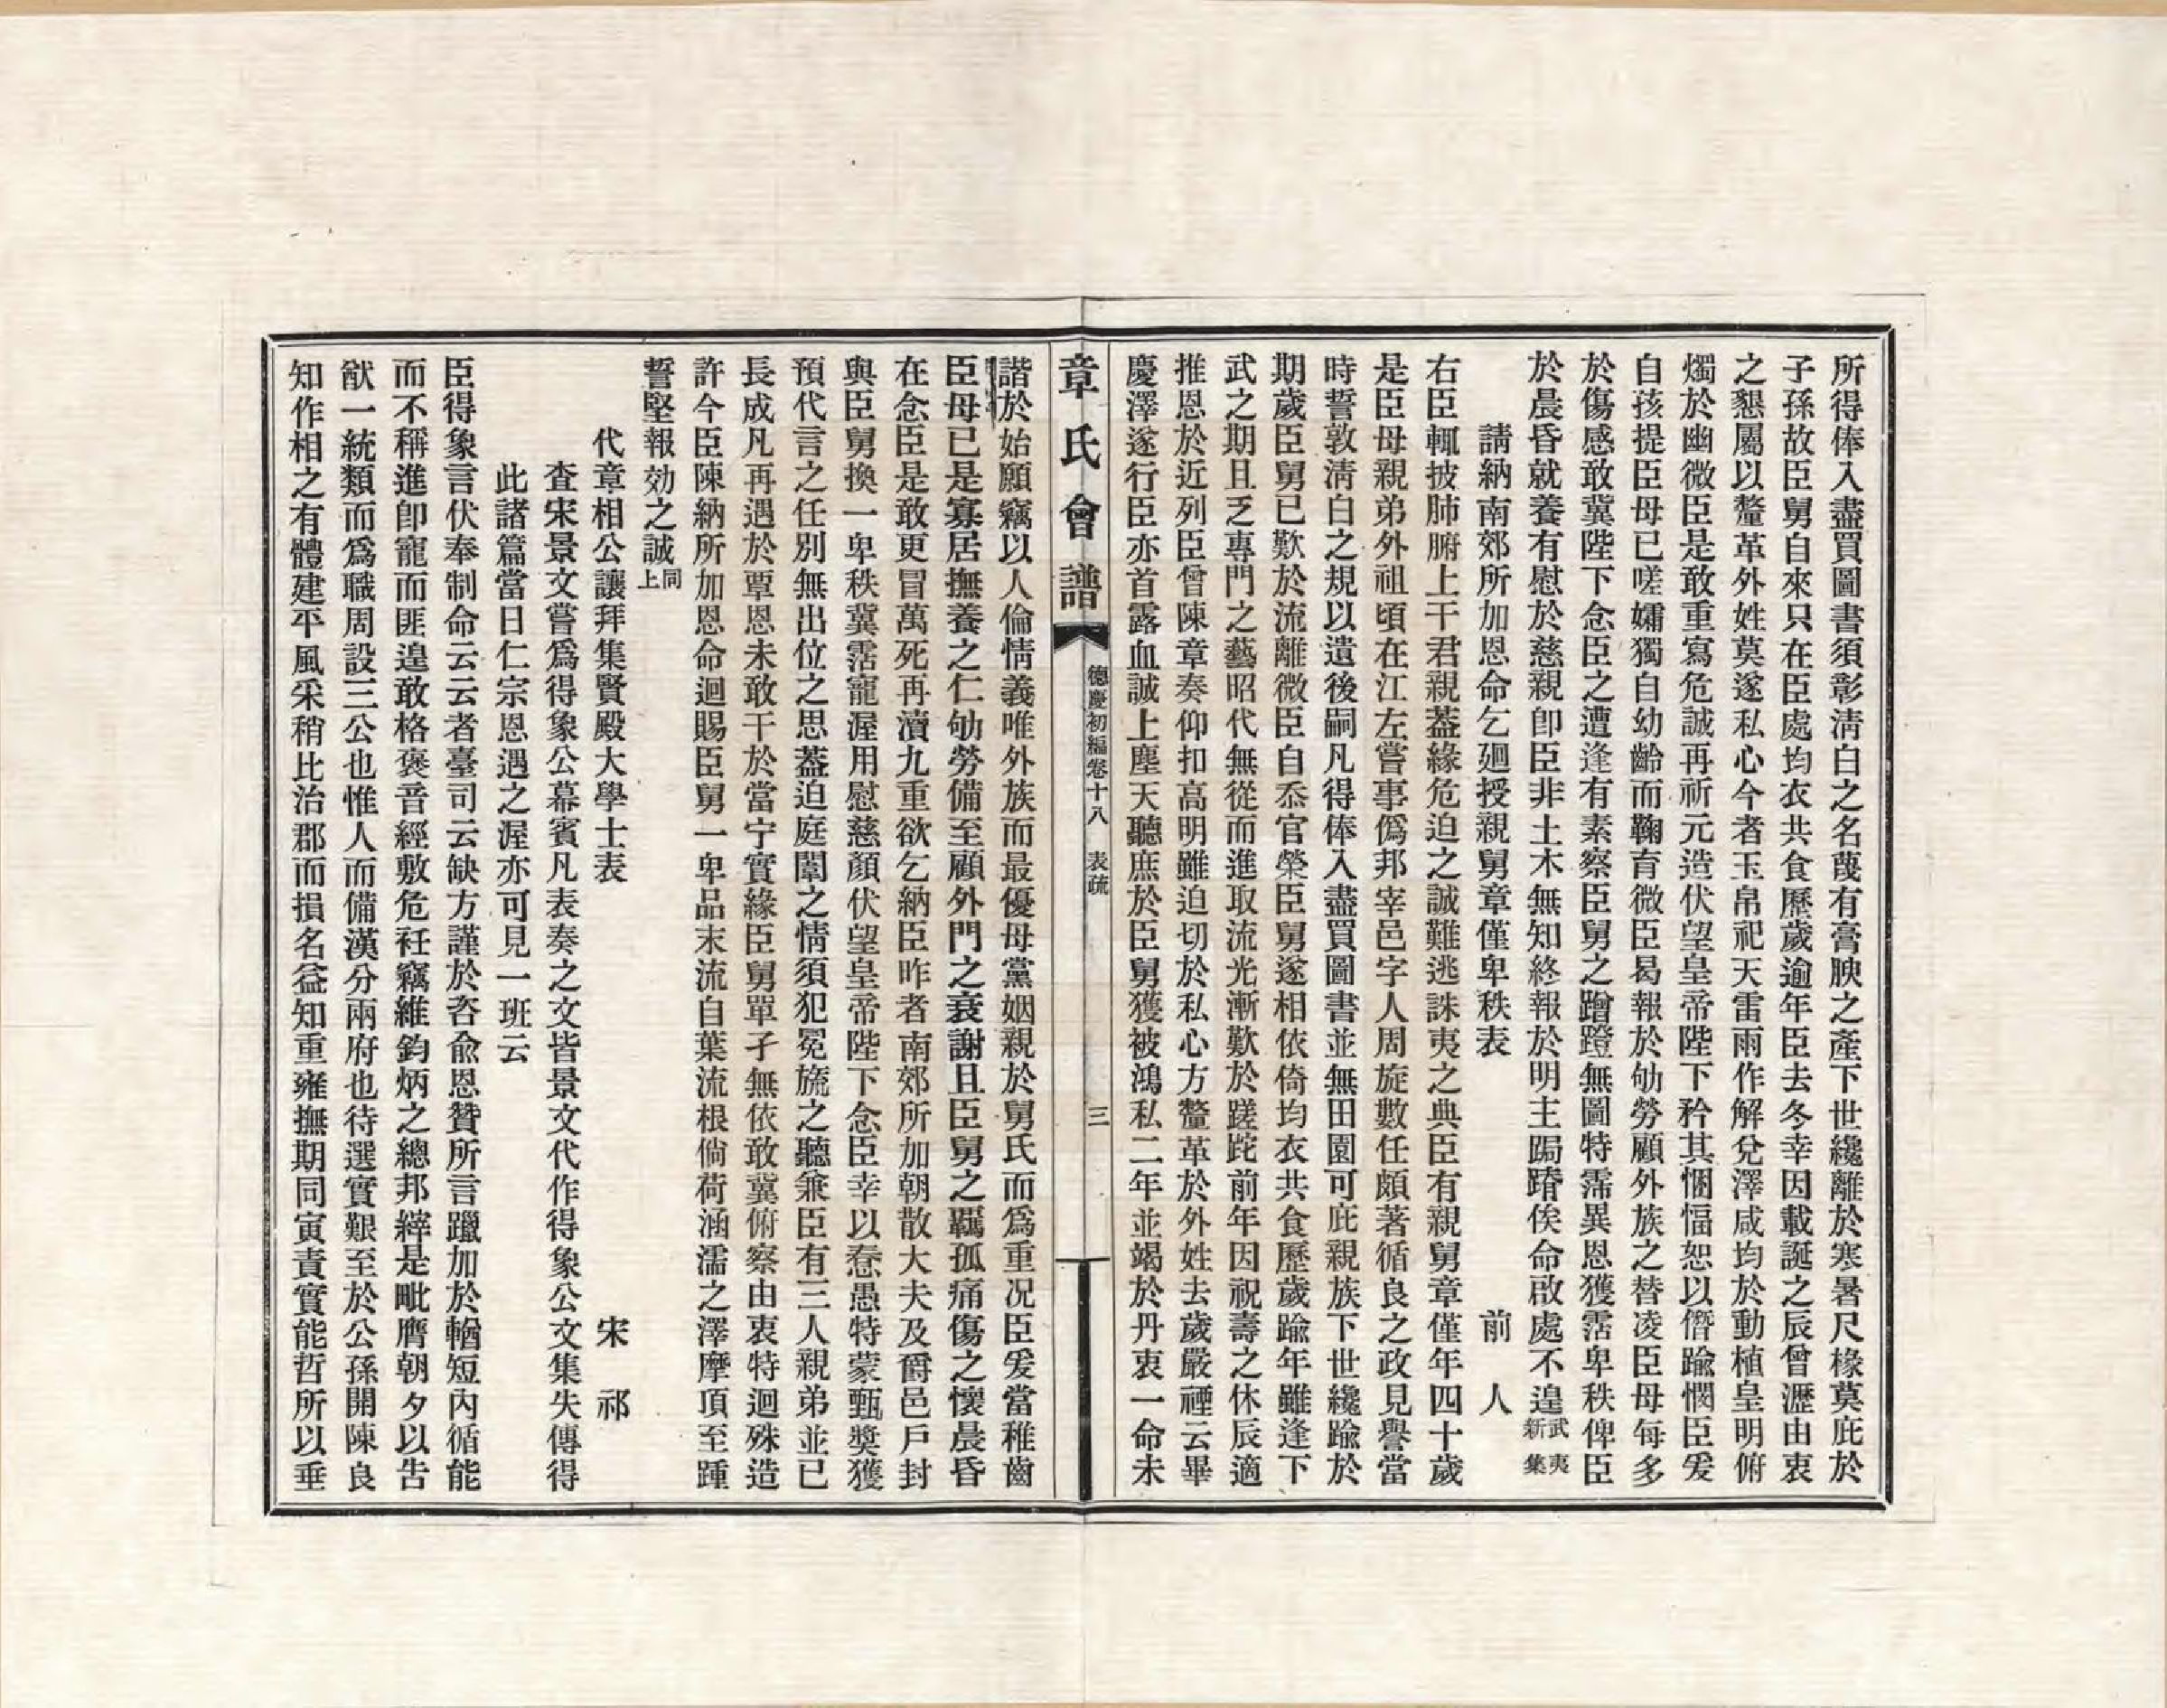 所得俸入盡買圖書須彰淸白之名蔑有膏腴之產下世纔離於寒暑尺椽莫庇於
子孫故臣舅自來只在臣處均衣共食歷歲逾年臣去冬幸因載誕之辰曾瀝由衷
之懇屬以釐革外姓莫遂私心今者玉帛祀天雷雨作解兌澤咸均於動植皇明俯
燭於幽微臣是敢重寫危誠再祈元造伏望皇帝陛下矜其悃愊恕以僭踰憫臣爰
自孩提臣母已嗟孀獨自幼齡而鞠育微臣曷報於劬勞顧外族之替凌臣母每多
於傷感敢冀陛下念臣之遭逢有素察臣舅之蹭蹬無圖特霈異恩獲霑卑秩俾臣
於晨昏就養有慰於慈親卽臣非土木無知終報於明主跼蹐俟命啟處不遑武夷新集
請納南郊所加恩命乞廻授親舅章僅卑秩表　前人
右臣輒披肺腑上干君親葢緣危迫之誠難逃誅夷之典臣有親舅章僅年四十歲
是臣母親弟外祖頃在江左嘗事僞邦宰邑字人周旋數任頗著循良之政見譽當
時誓敦淸白之規以遺後嗣凡得俸入盡買圖書並無田園可庇親族下世纔踰於
期歲臣舅已歎於流離微臣自忝官榮臣舅遂相依倚均衣共食歷歲踰年雖逢下
武之期且乏專門之藝昭代無從而進取流光漸歎於蹉跎前年因祝壽之休辰適
推恩於近列臣曾陳章奏仰扣高明雖迫切於私心方釐革於外姓去歲嚴禋云畢
慶澤遂行臣亦首露血誠上塵天聽庶於臣舅獲被鴻私二年並竭於丹衷一命未
章氏會譜
德慶初編卷十八　表疏
三
諧於始願竊以人倫情義唯外族而最優母黨姻親於舅氏而爲重況臣爰當稚齒
臣母已是寡居撫養之仁劬勞備至顧外門之衰謝且臣舅之羈孤痛傷之懷晨昏
在念臣是敢更冒萬死再瀆九重欲乞納臣昨者南郊所加朝散大夫及爵邑戶封
與臣舅換一卑秩冀霑寵渥用慰慈顏伏望皇帝陛下念臣幸以惷愚特蒙甄獎獲
預代言之任別無出位之思葢迫庭闈之情須犯冕旒之聽兼臣有三人親弟並已
長成凡再遇於覃恩未敢干於當宁實緣臣舅單孑無依敢冀俯察由衷特迴殊造
許今臣陳納所加恩命迴賜臣舅一卑品末流自葉流根倘荷涵濡之澤摩頂至踵
誓堅報効之誠同上
代章相公讓拜集賢殿大學士表　宋祁
查宋景文嘗爲得象公幕賓凡表奏之文皆景文代作得象公文集失傳得
此諸篇當日仁宗恩遇之渥亦可見一班云
臣得象言伏奉制命云云者臺司云缺方謹於咨兪恩贊所言躐加於輶短內循能
而不稱進卽寵而匪遑敢格褒音經敷危衽竊維鈞炳之總邦縡是毗膺朝夕以吿
猷一統類而爲職周設三公也惟人而備漢分兩府也待選實艱至於公孫開陳良
知作相之有體建平風采稍比治郡而損名益知重雍撫期同寅責實能哲所以垂